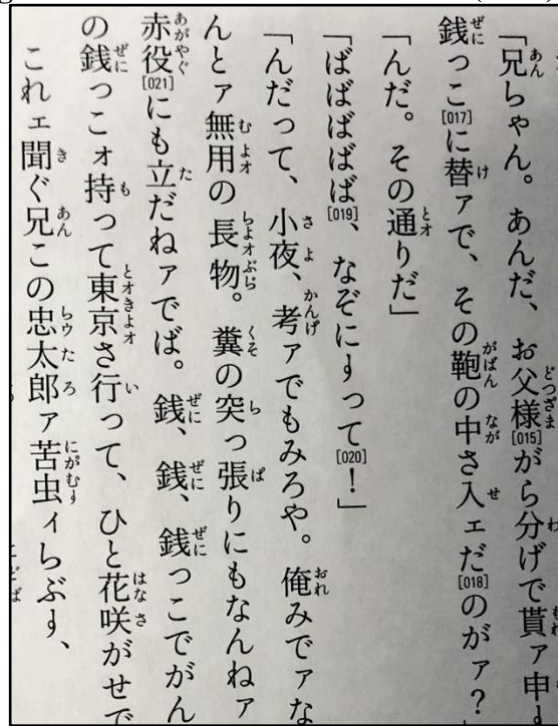 「兄ちゃん。あんだ、お父様[015]がら分げで貰ァ申
銭っこ[017]に替ァで、その鞄の中さ入ェだ[018]のがァ？
「んだ。その通りだ」
「ばばばばば[019]、なぞにすって[020]！」
「んだって、小夜、考ァでもみろや。俺みでァな
んとァ無用の長物。糞の突っ張りにもなんねァ
赤役[021]にも立だねァでば。銭、銭、銭っこでがん
の銭っこォ持って東京さ行って、ひと花咲がせで
これェ聞ぐ兄この忠太郎ァ苦虫ィらぶす、